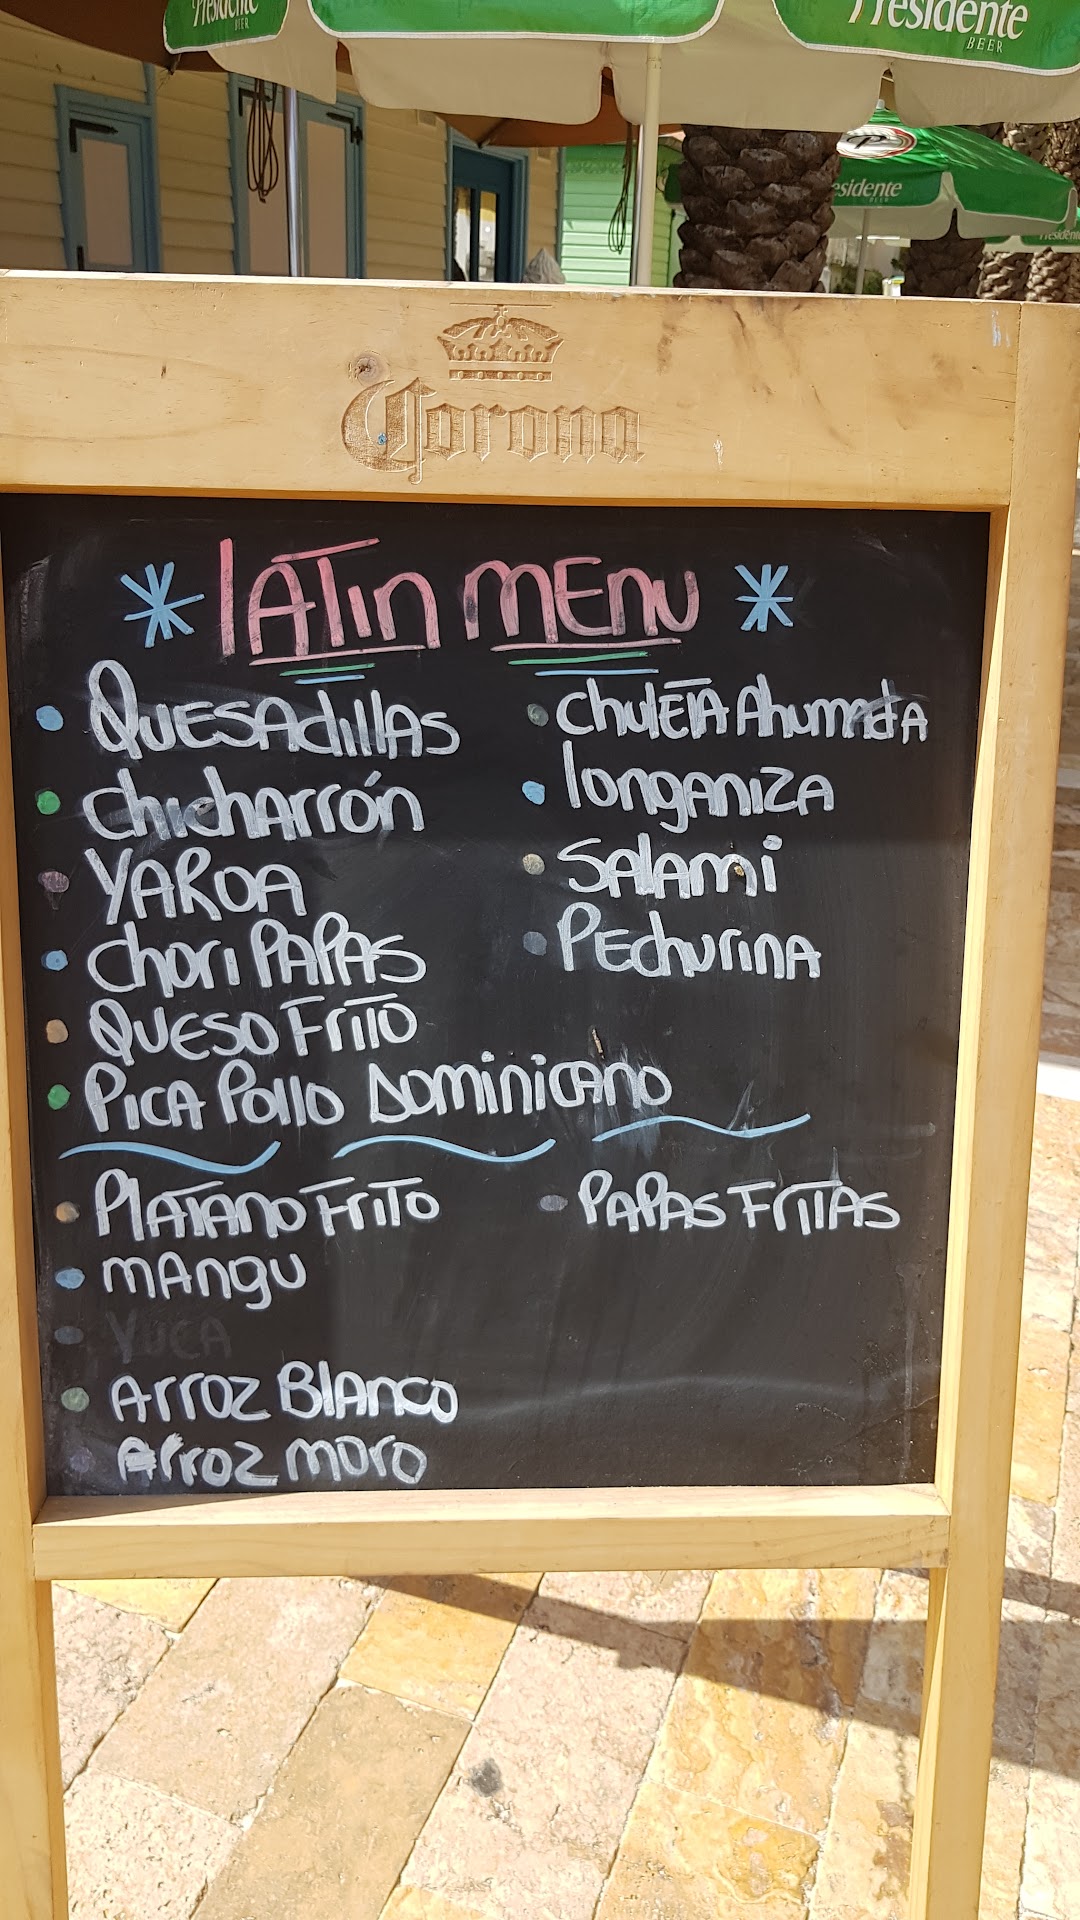 Presidente
BEER
Presidente
BEER
esidente
BEER
Presidente
Corona
LATIN MENU
QUESADILLAS
CHICHARRÓN
YAROA
CHORI PAPAS
QUESO FRITO
PICA POLLO DOMINICANO
CHULETA AHUMADA
LONGANIZA
SALAMI
PECHURINA
PLATANO FRITO
MANGU
YUCA
ARROZ BLANCO
ARROZ MORO
PAPAS FRITAS